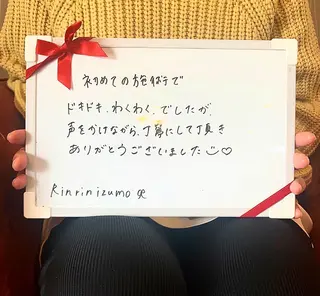 初めての施術で
ドキドキ、わくわく、でしたが、
声をかけながら、丁寧にして頂き
ありがとうございました
Rinrinizumo